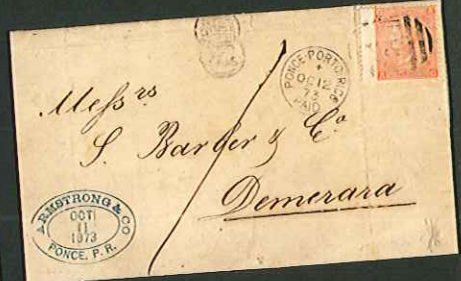 PONCE·PORTO·RICO
OC 12
73
PAID
Messrs
S. Barber & Co
Demerara
ARMSTRONG & CO
OCT
11
1873
PONCE, P. R.